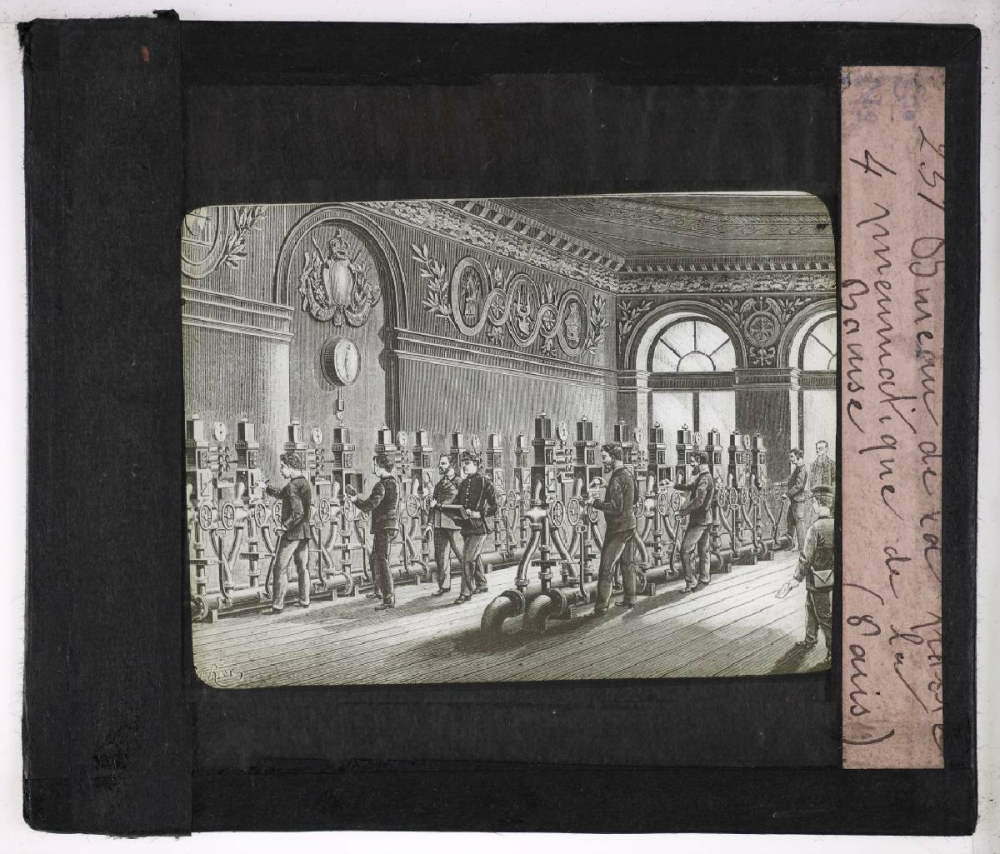 231 Bureau de la Poste
4 pneumatique de la
Bourse (Paris)